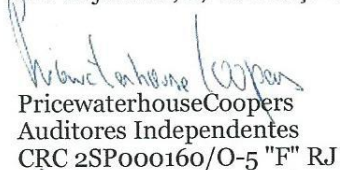 PricewaterhouseCoopers
PricewaterhouseCoopers
Auditores Independentes
CRC 2SP000160/O-5 "F" RJ